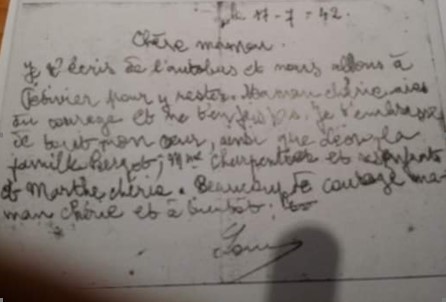 le 17-7-42.
Chère maman.
Je t'écris de l'autobus et nous allons à
pour y rester. Maman chérie aie
du courage et ne t'en fais pas. Je t'embrasse
de tout mon cœur, ainsi que la
famille ; Mme Charpentier et enfants
et Marthe chérie. Beaucoup de courage ma-
man chérie et à bientôt.